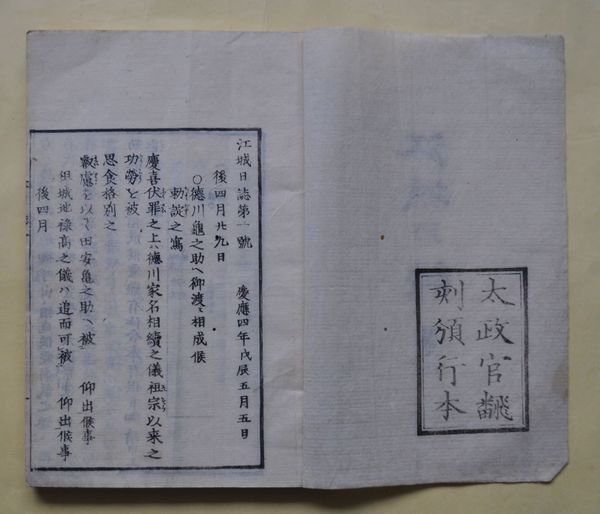 太政官
刻頒行本
江城日誌第一號 慶應四年戊辰五月五日
後四月廿九日
○德川龜之助へ御渡ニ相成候
勅諚之寫
慶喜伏罪之上ハ德川家名相續之儀祖宗以来之
功勞を被
思食格別之
叡慮を以て田安亀之助へ被 仰出候事
但城池禄高之儀ハ追而可被 仰出候事
後四月